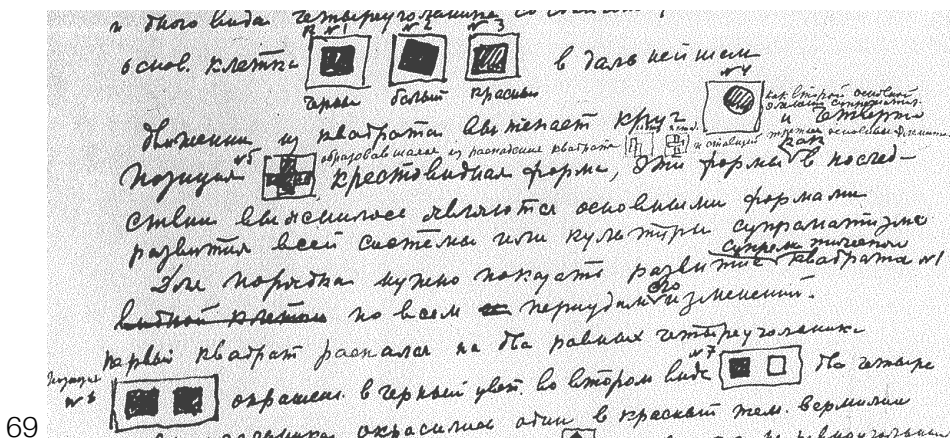 и двого вида четыреугольника
№1 №2 №3
основ. клетка в дальнейшем
черный белый красный
№4
как второй основной
движении из квадрата вытекает круг и четверто
образовавшаяся из распадения квадрата и ставшей как третья основным
позиция №5 крестовидная форма, эти формы в послед-
ствии выяснилось являются основными формами
развития всей системы или культуры супрематизма
супрематической
Для порядка нужно показать развитие квадрата №1
видной клетки по всем периудам его изменений.
первый квадрат распался на два равных четыреугольника
позиция №6 №7
окрашен. в черный цвет. во втором виде два четыре
окрасились один в красный тем. вермилии
69